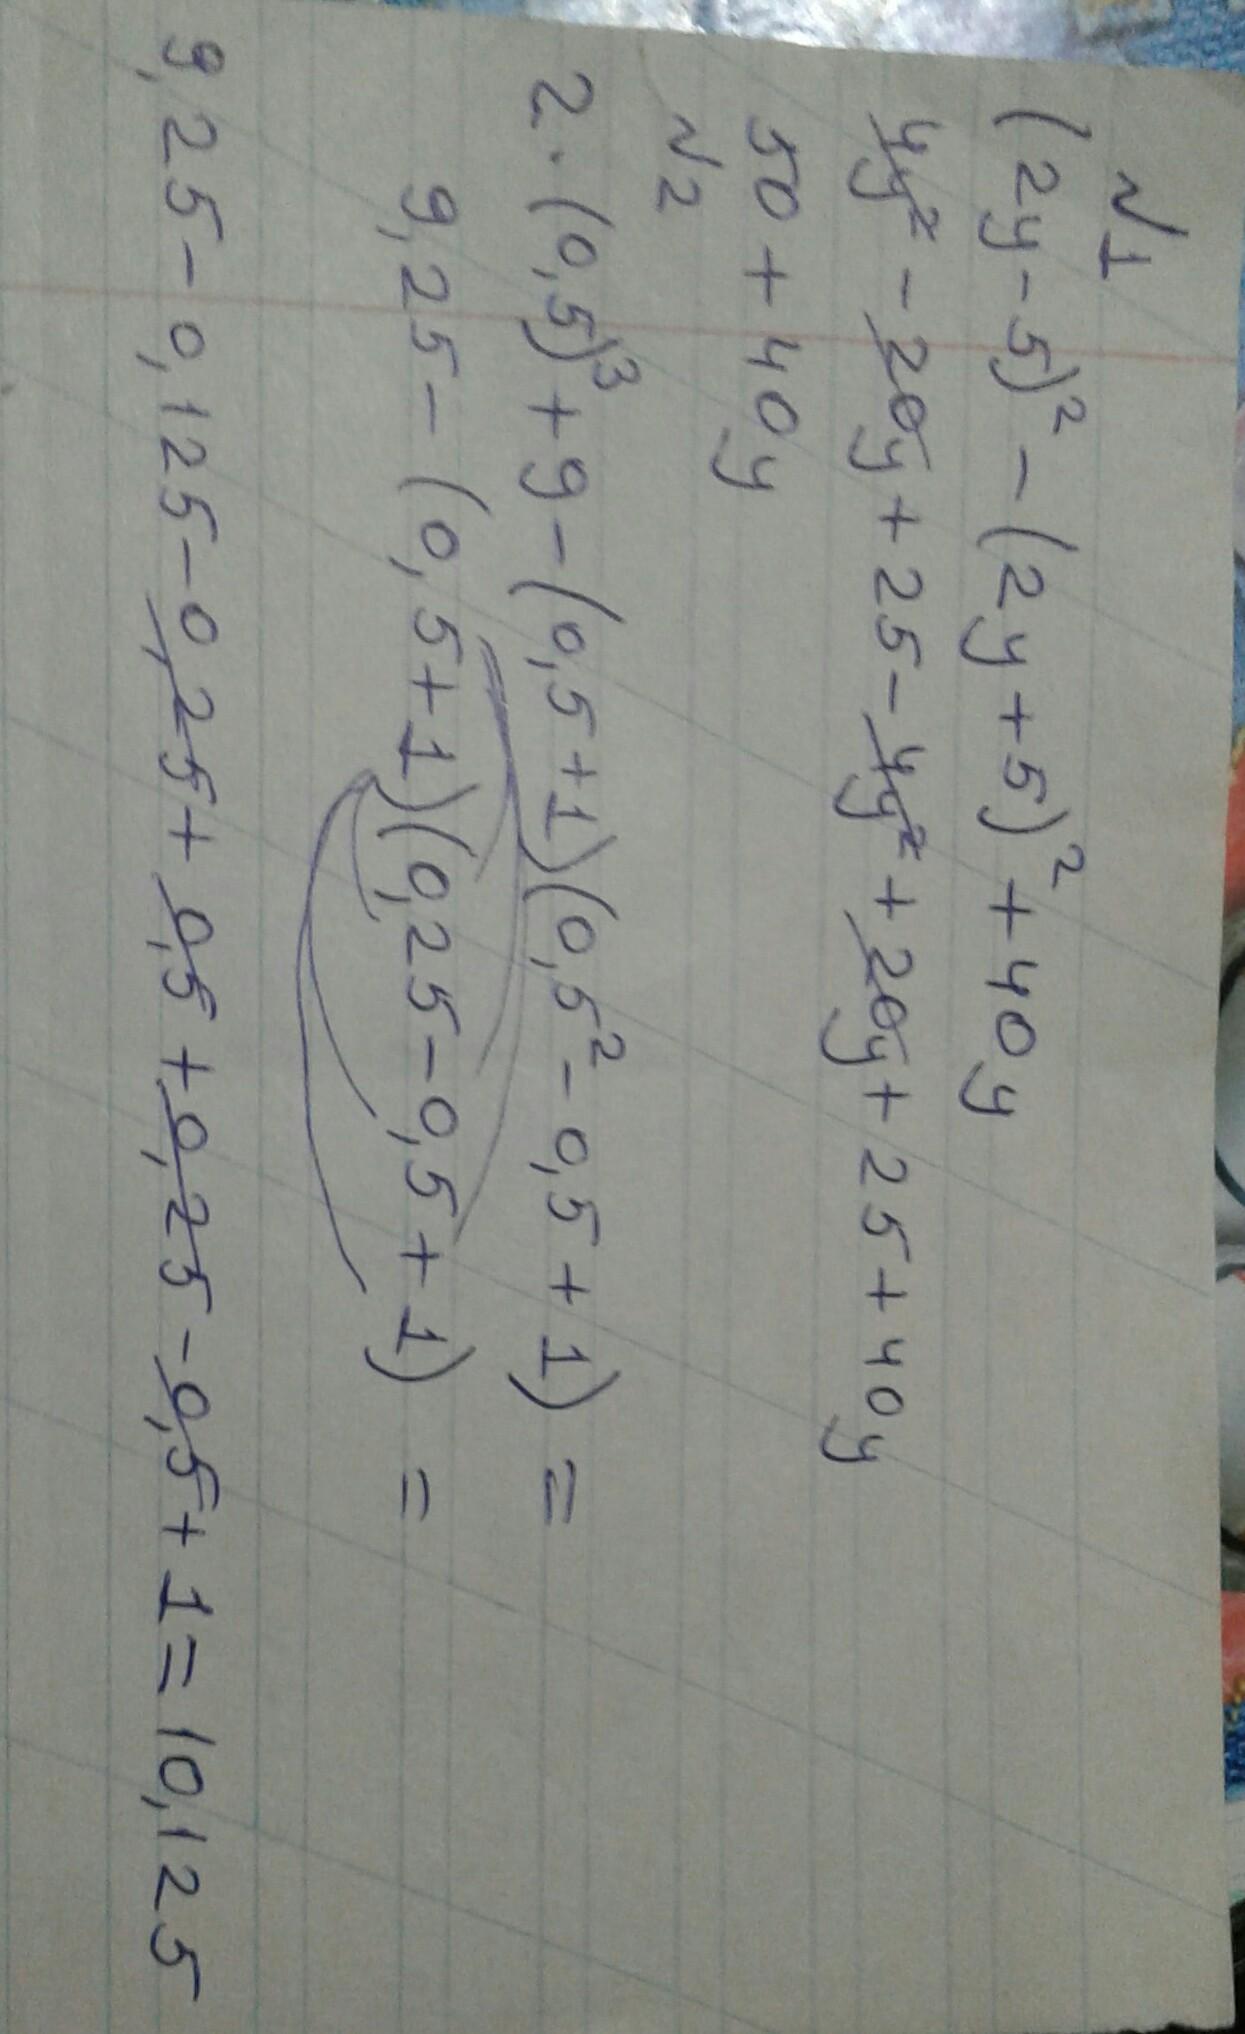 №1
(2y-5)² - (2y+5)² + 40y
4y² - 20y + 25 - 4y² + 20y + 25 + 40y
50 + 40y
№2
2·(0,5)³ + 9 - (0,5+1)(0,5² - 0,5 + 1) =
9,25 - (0,5+1)(0,25 - 0,5 + 1) =
9,25 - 0,125 - 0,25 + 0,5 + 0,25 - 0,5 + 1 = 10,125